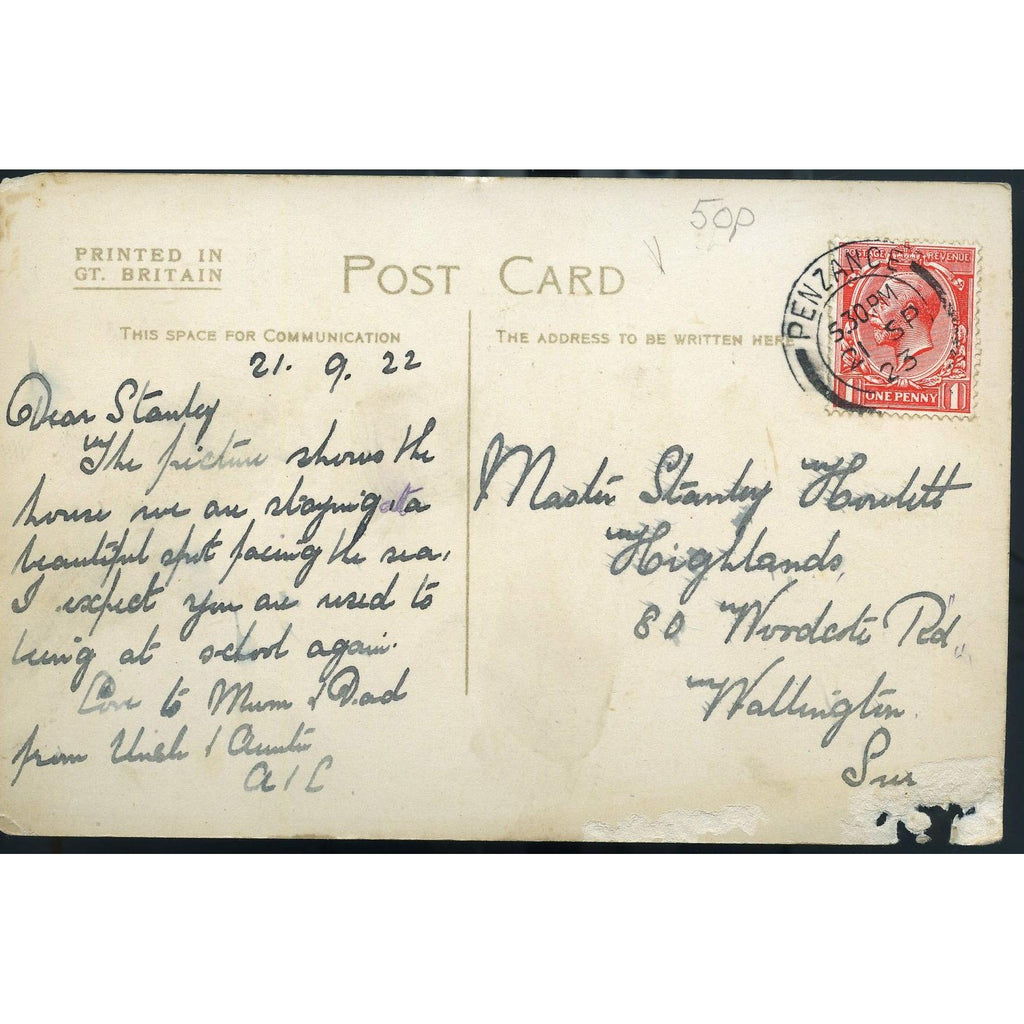 50p
PRINTED IN
GT. BRITAIN
POST CARD
THIS SPACE FOR COMMUNICATION
THE ADDRESS TO BE WRITTEN HERE
POSTAGE REVENUE
ONE PENNY
1 1
PENZANCE
5.30 PM
21 SP
23
21. 9. 22
Dear Stanley
The picture shows the
house we are staying at a
beautiful spot facing the sea.
I expect you are used to
being at school again.
Love to Mum & Dad
from Uncle & Auntie
A & L
Master Stanley Howlett
Highlands,
80 Woodcote Rd,
Wallington.
Sur